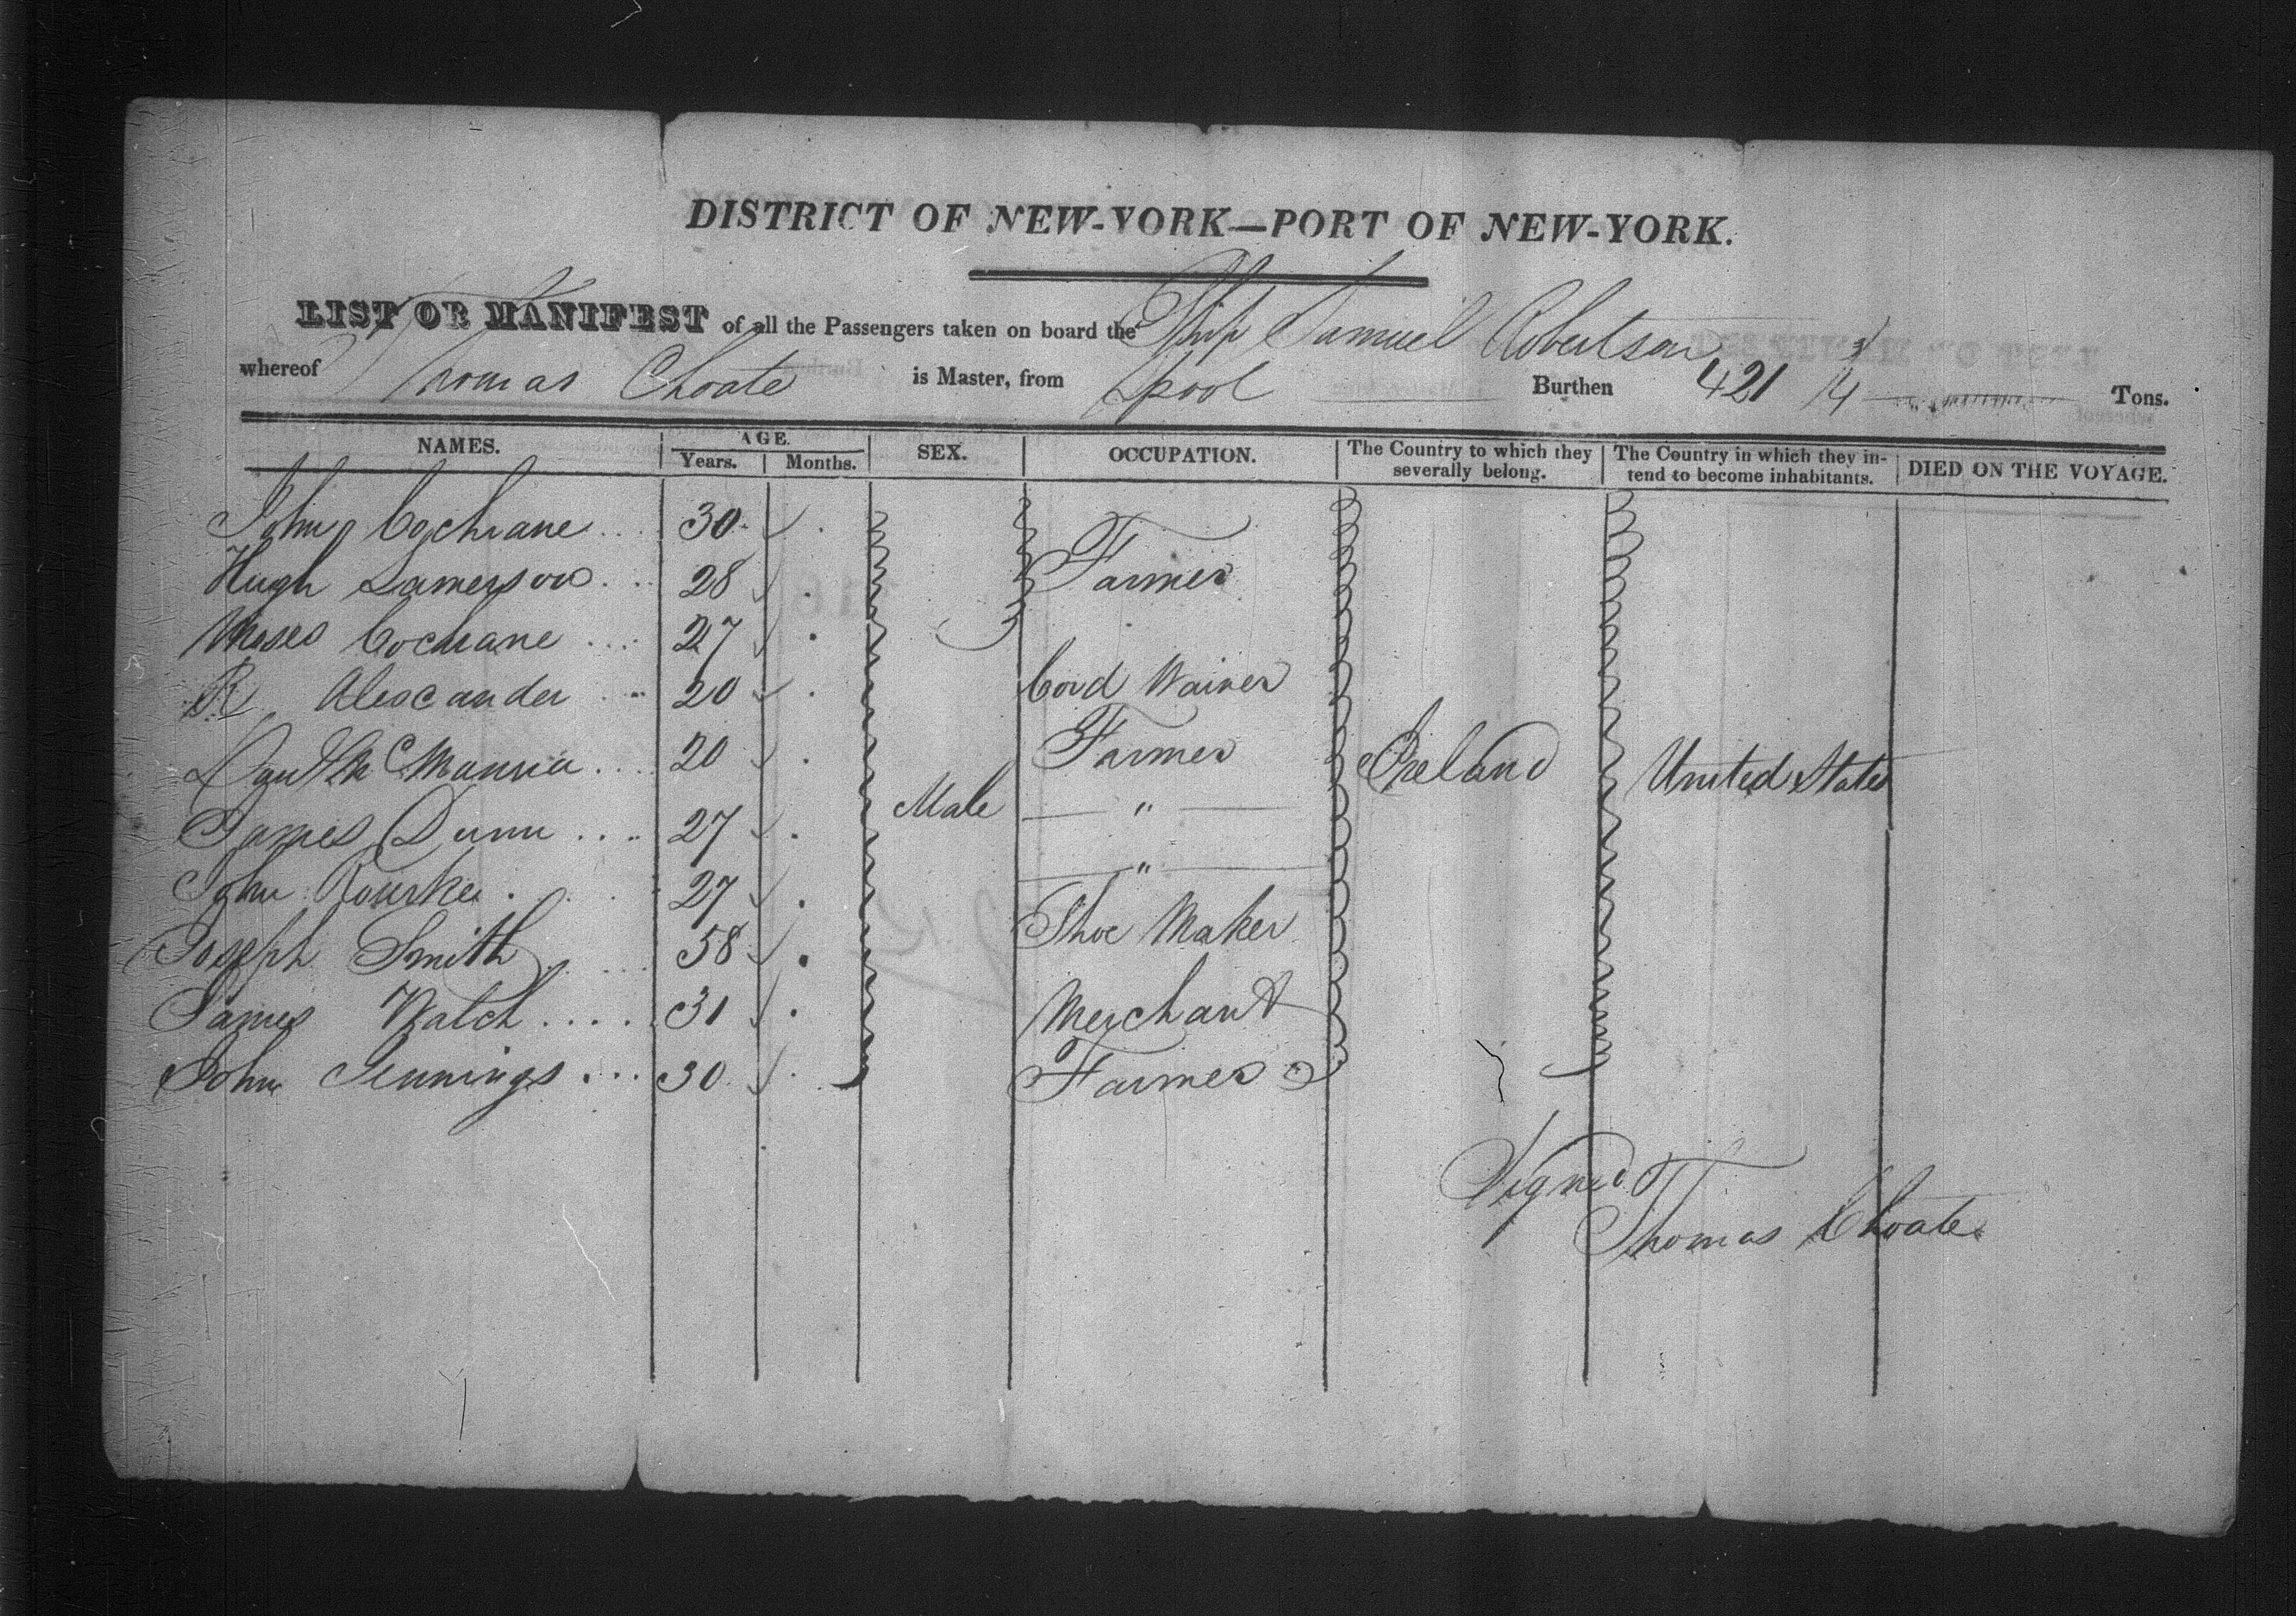 DISTRICT OF NEW-YORK—PORT OF NEW-YORK.
LIST OR MANIFEST of all the Passengers taken on board the Ship Samuel Robertson
whereof Thomas Choate is Master, from Lpool Burthen 421 3/4 Tons.
NAMES. AGE. Years. Months. SEX. OCCUPATION. The Country to which they severally belong. The Country in which they intend to become inhabitants. DIED ON THE VOYAGE.
John Cochrane 30
Hugh 28 Farmer
Moses Cochrane 27
R Alexander 20 Cord Wainer
20 Farmer Ireland United States
James Dunn 27 Male "
John Rourke 27 "
Joseph Smith 58 Shoe Maker
James Watch 31 Merchant
John Jennings 30 Farmer
Signed
Thomas Choate